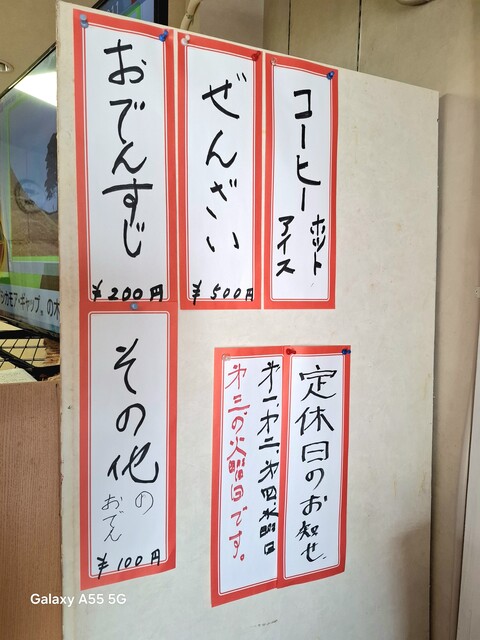 コーヒー
ホット
アイス
ぜんざい
¥500円
おでんすじ
¥200円
その他の
おでん
¥100円
定休日のお知せ
オ一、オ二、オ四、水曜日
オ三の火曜日です。
Galaxy A55 5G